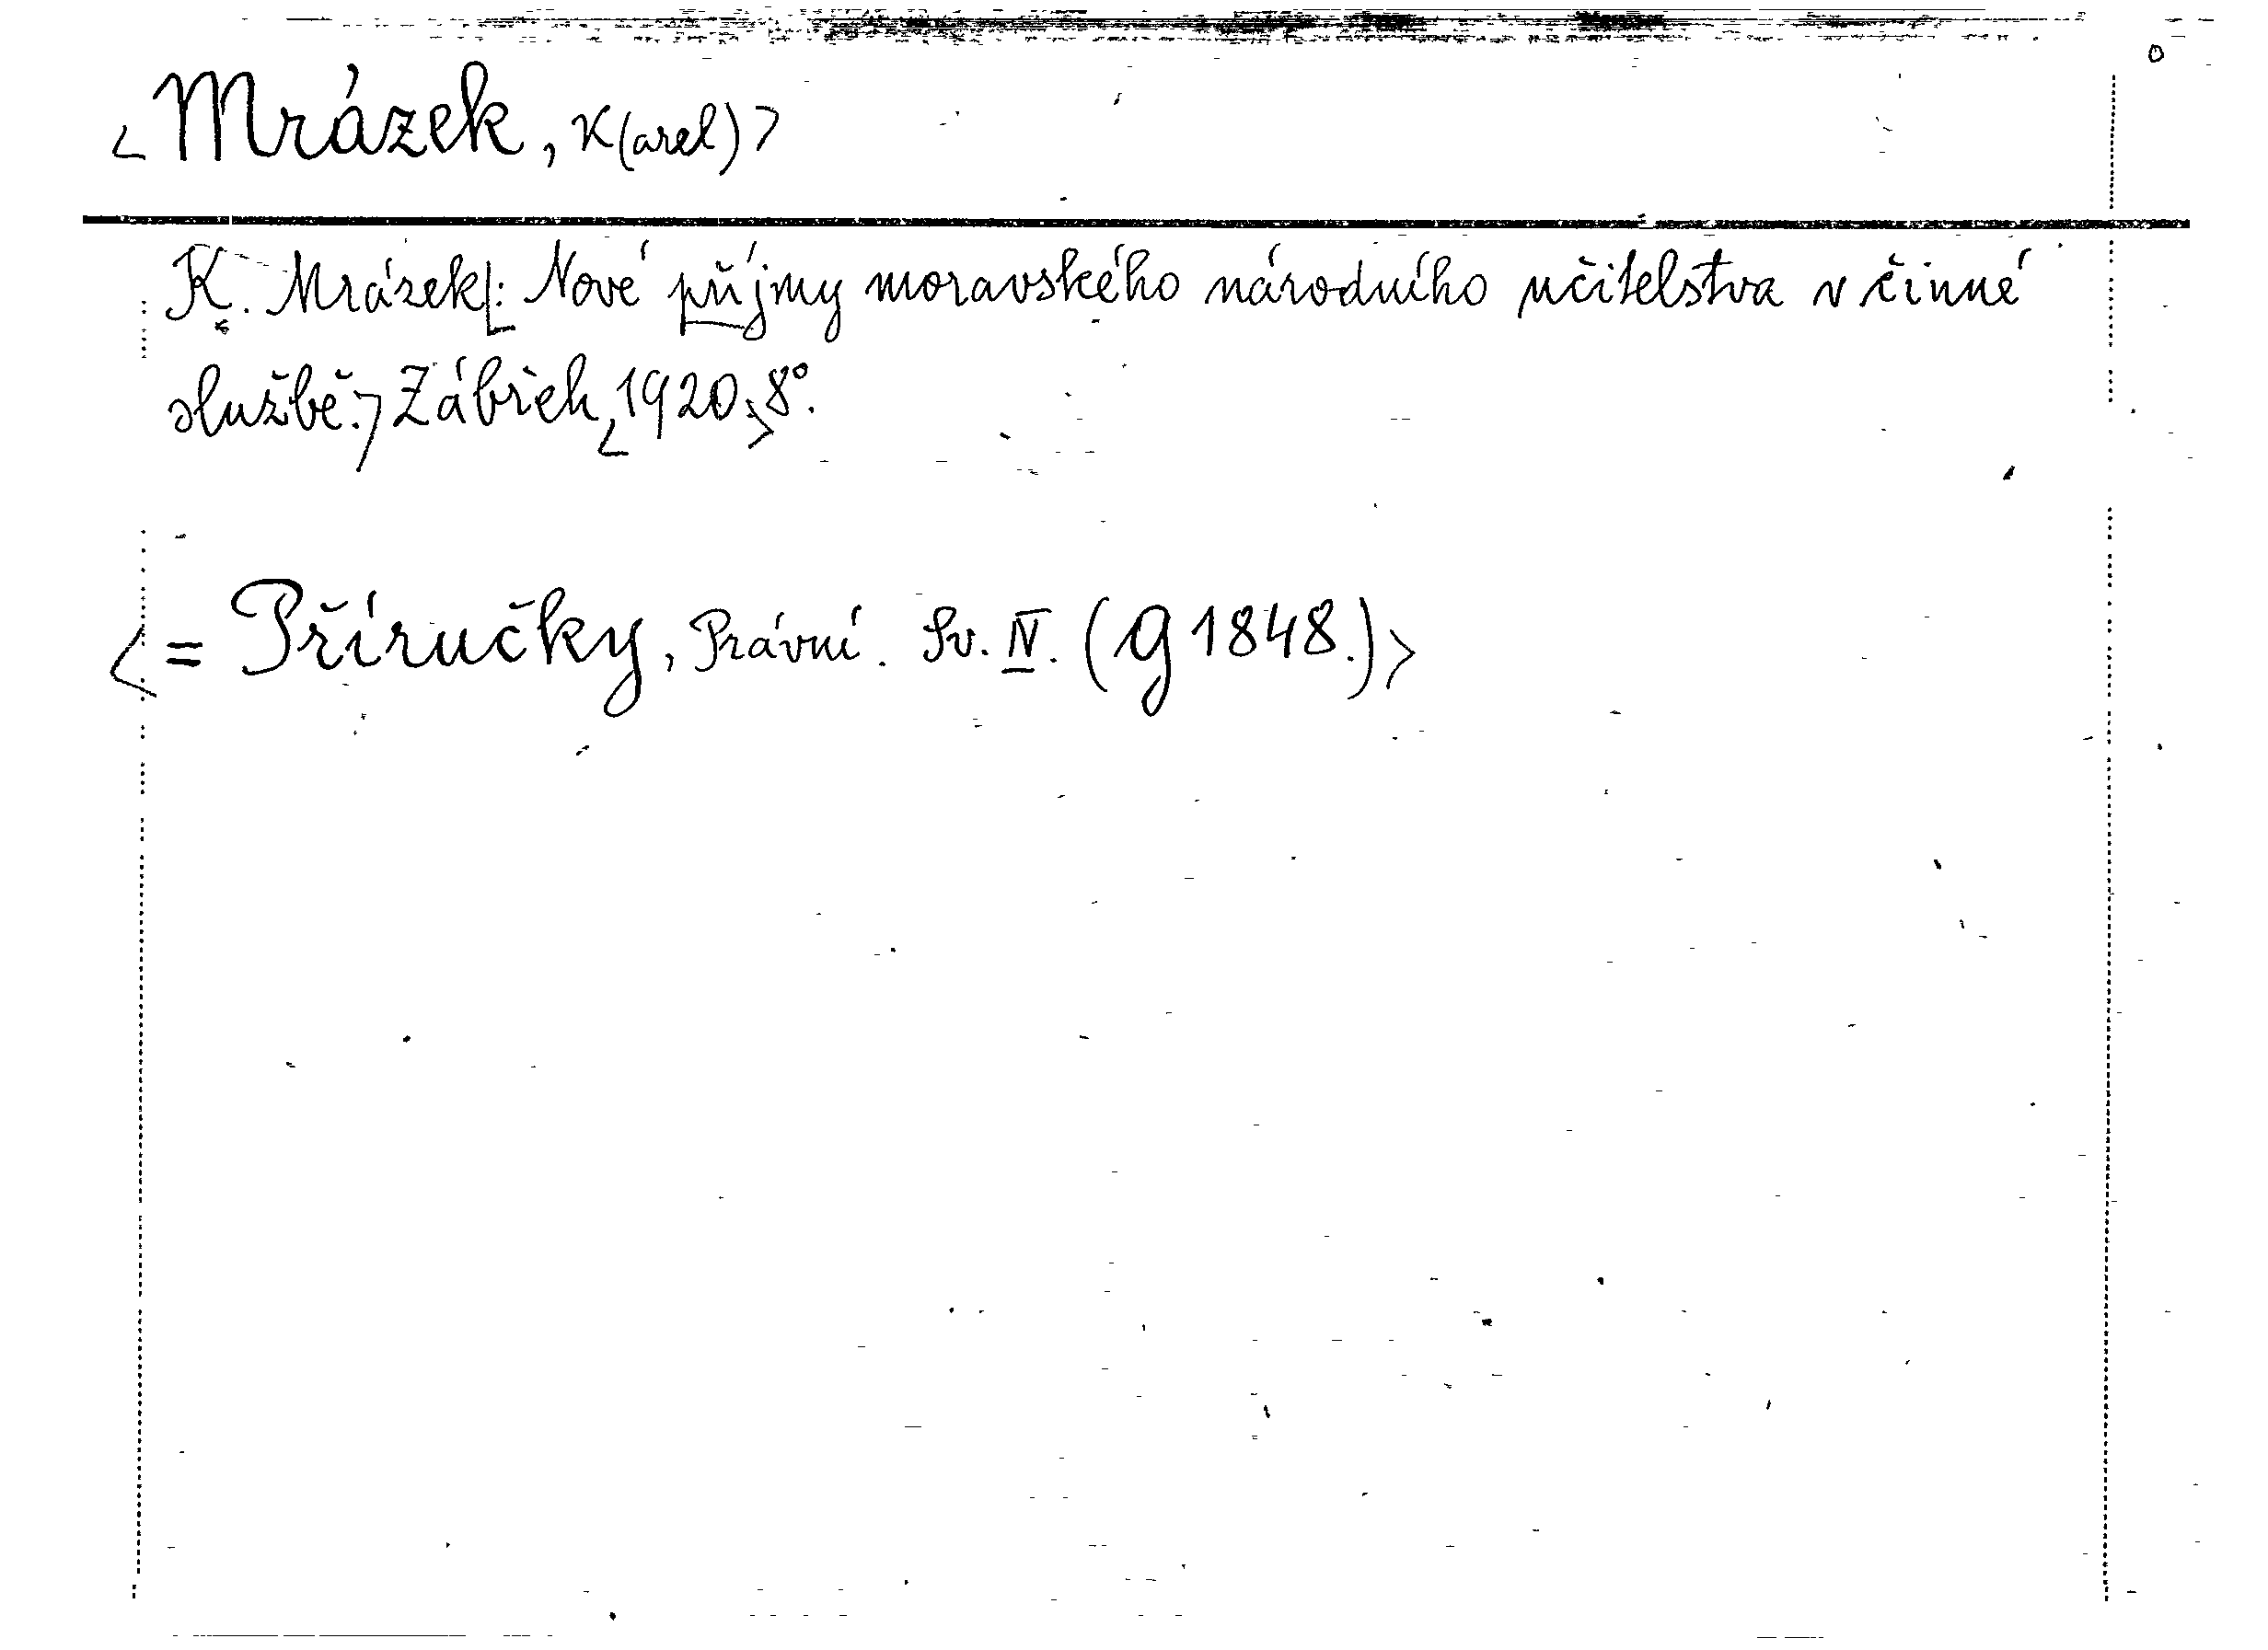 <Mrázek, K(arel)>
K. Mrázek[: Nové příjmy moravského národního učitelstva v činné
službě.] Zábřeh <1920> 8°.
<= Příručky, Právní. Sv. IV. (g 1848.)>